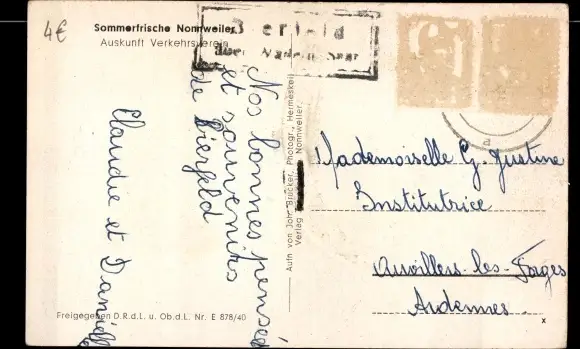 4€
Sommerfrische Nonnweiler
Auskunft Verkehrsverein
Bierfeld
über
Nos bonnes pensées
et souvenirs
de Bierfeld
Claudie et Danièle
Aufn von Joh. Blücker, Photogr., Hermeskeil
Verlag Nonnweiler.
Mademoiselle G. Justine
Institutrice
Auvillers-les-Forges
Ardennes.
Freigegeben D.R.d.L. u. Ob.d.L. Nr. E 878/40
a
x